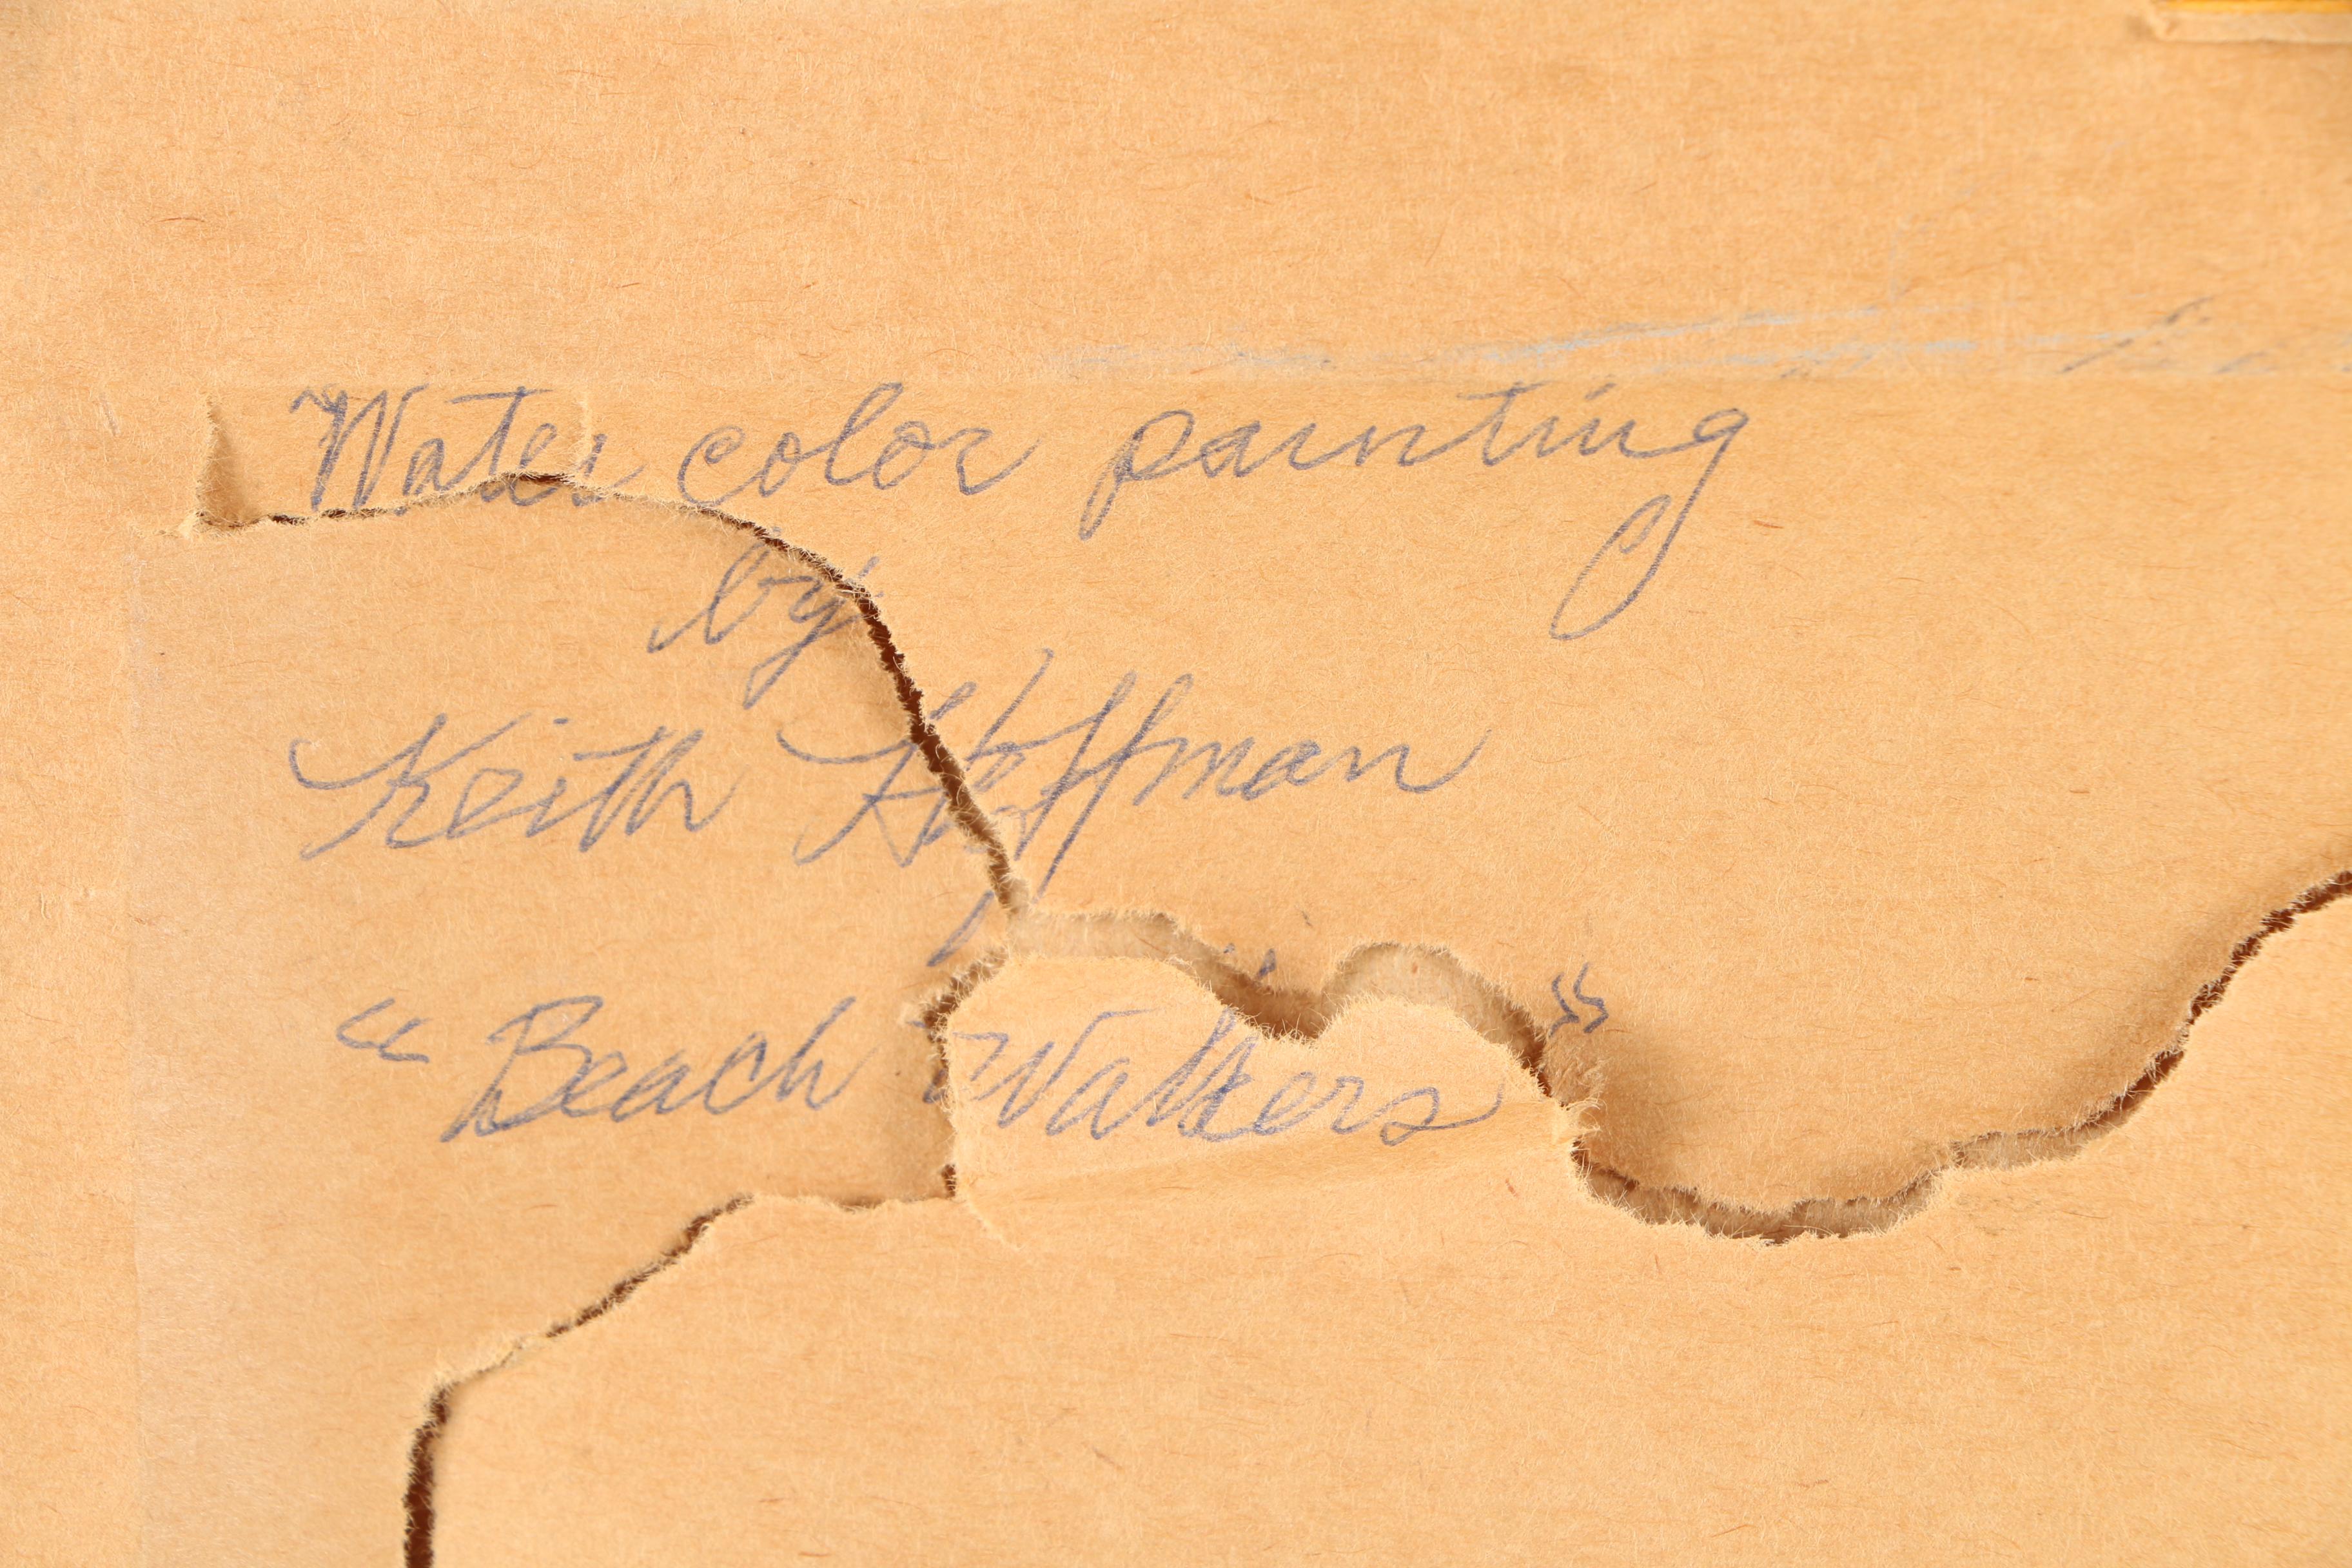 Water color painting
by
Keith Hoffman
"Beach Walkers"